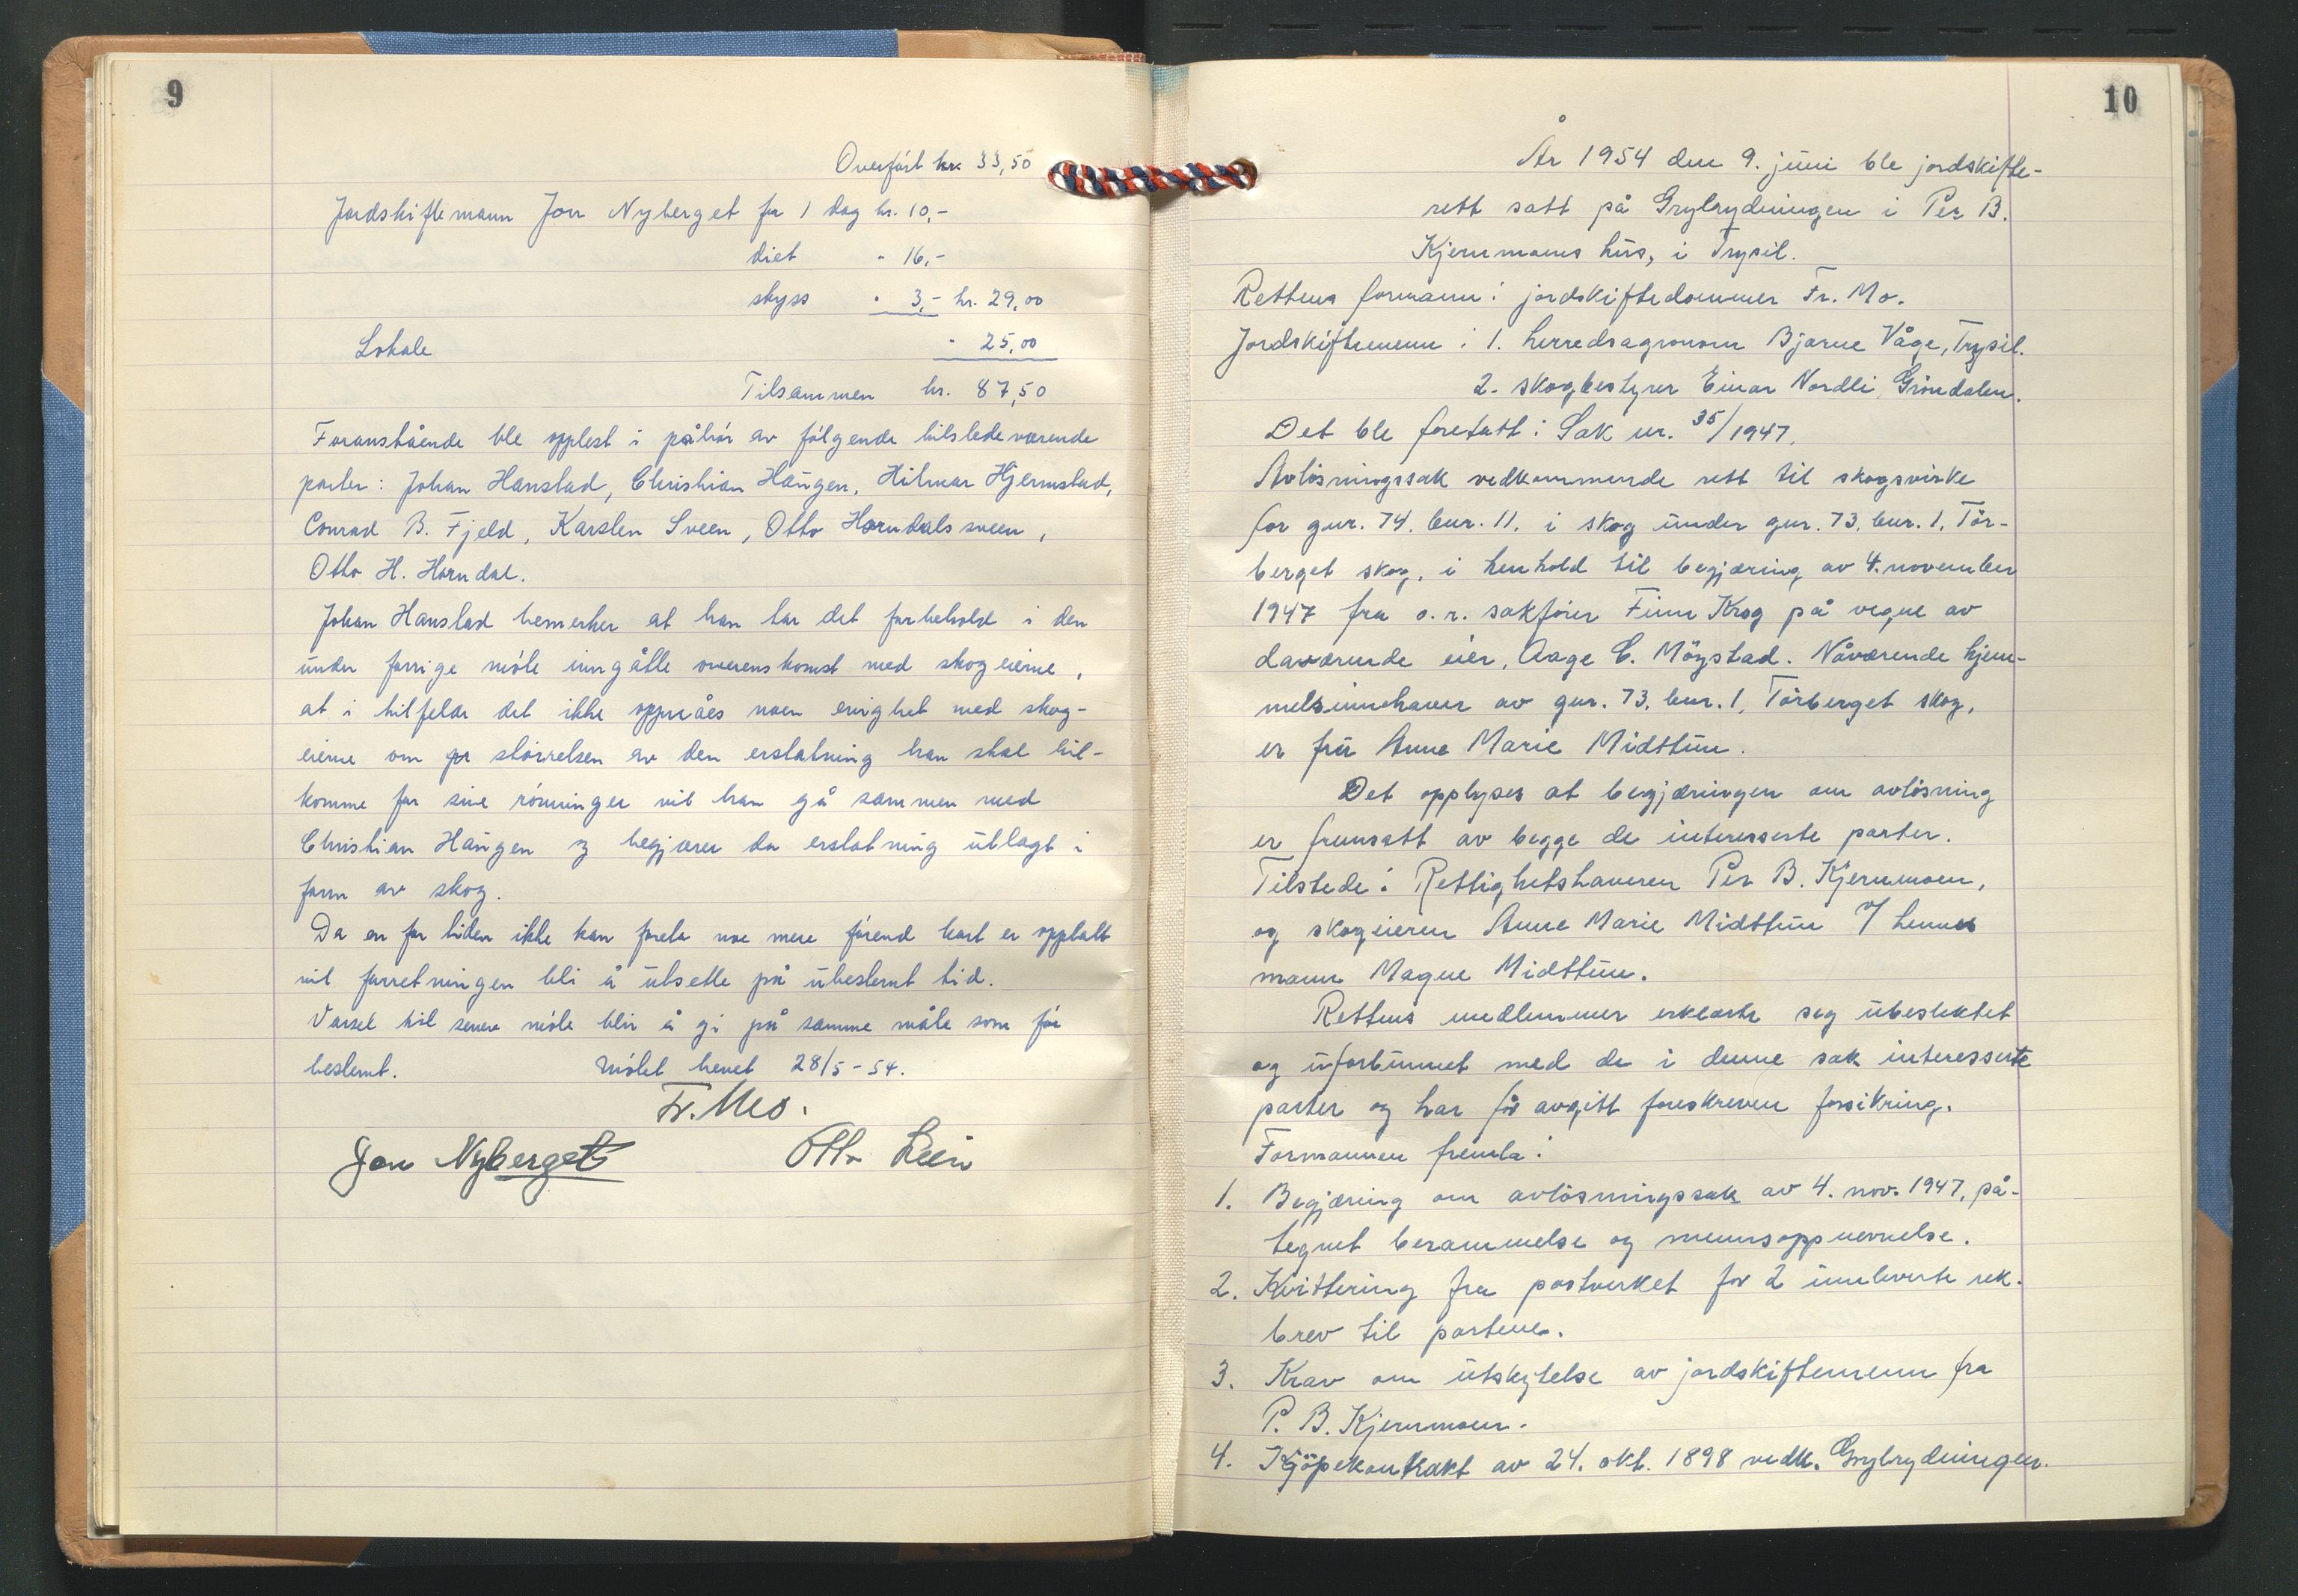 9
Overført kr. 33,50
Jordskiftemann Jon Nyberget for 1 dag kr. 10,-
diet " 16,-
skyss " 3,- kr. 29,00
Lokale " 25,00
Tilsammen kr. 87,50
Foranstående ble opplest i påhør av følgende tilstedeværende
parter: Johan Hanstad, Christian Haugen, Hilmar Hjermstad,
Conrad B. Fjeld, Karsten Sveen, Otto Horndalssveen,
Otto H. Horndal.
Johan Hanstad bemerker at han tar det forbehold i den
under forrige møte inngåtte overenskomst med skogeierne,
at i tilfelde det ikke oppnåes noen enighet med skog-
eierne om størrelsen av den erstatning han skal til-
komme for sine rømninger vil han gå sammen med
Christian Haugen og begjærer da erstatning utlagt i
form av skog.
Da en for tiden ikke kan foreta noe mere førend kart er opptatt
vil forretningen bli å utsette på ubestemt tid.
Varsel til senere møte blir å gi på samme måte som før
bestemt. Møtet hevet 28/5-54.
Fr. Mo.
Jon Nyberget Otto Lein
10
År 1954 den 9. juni ble jordskifte-
rett satt på Grylrydningen i Per B.
Kjernmoens hus, i Trysil.
Rettens formann: jordskiftedommer Fr. Mo.
Jordskiftemenn: 1. herredsagronom Bjarne Våge, Trysil.
2. skogbestyrer Einar Nordli, Gröndalen.
Det ble foretatt: Sak nr. 35/1947.
Avlösningssak vedkommende rett til skogsvirke
for gnr. 74. bnr. 11. i skog under gnr. 73. bnr. 1, Tör-
berget skog, i henhold til begjæring av 4. november
1947 fra o. r. sakförer Finn Krog på vegne av
daværende eier, Aage C. Möystad. Nåværende hjem-
melsinnehaver av gnr. 73. bnr. 1, Törberget skog,
er fru Anne Marie Midttun.
Det opplyses at begjæringen om avlösning
er fremsatt av begge de interesserte parter.
Tilstede: Rettighetshaveren Per B. Kjernmoen,
og skogeieren Anne Marie Midttun v/ hennes
mann Magne Midttun.
Rettens medlemmer erklærte seg ubeslektet
og uforbunnet med de i denne sak interesserte
parter og har för avgitt foreskreven forsikring.
Formannen fremla:
1. Begjæring om avlösningssak av 4. nov. 1947, på-
tegnet berammelse og mennsoppnevnelse.
2. Kvittering fra postverket for 2 innleverte rek.
brev til partene.
3. Krav om utskytelse av jordskiftemenn fra
P. B. Kjernmoen.
4. Kjöpekontrakt av 24. okt. 1898 vedk. Grylrydningen.